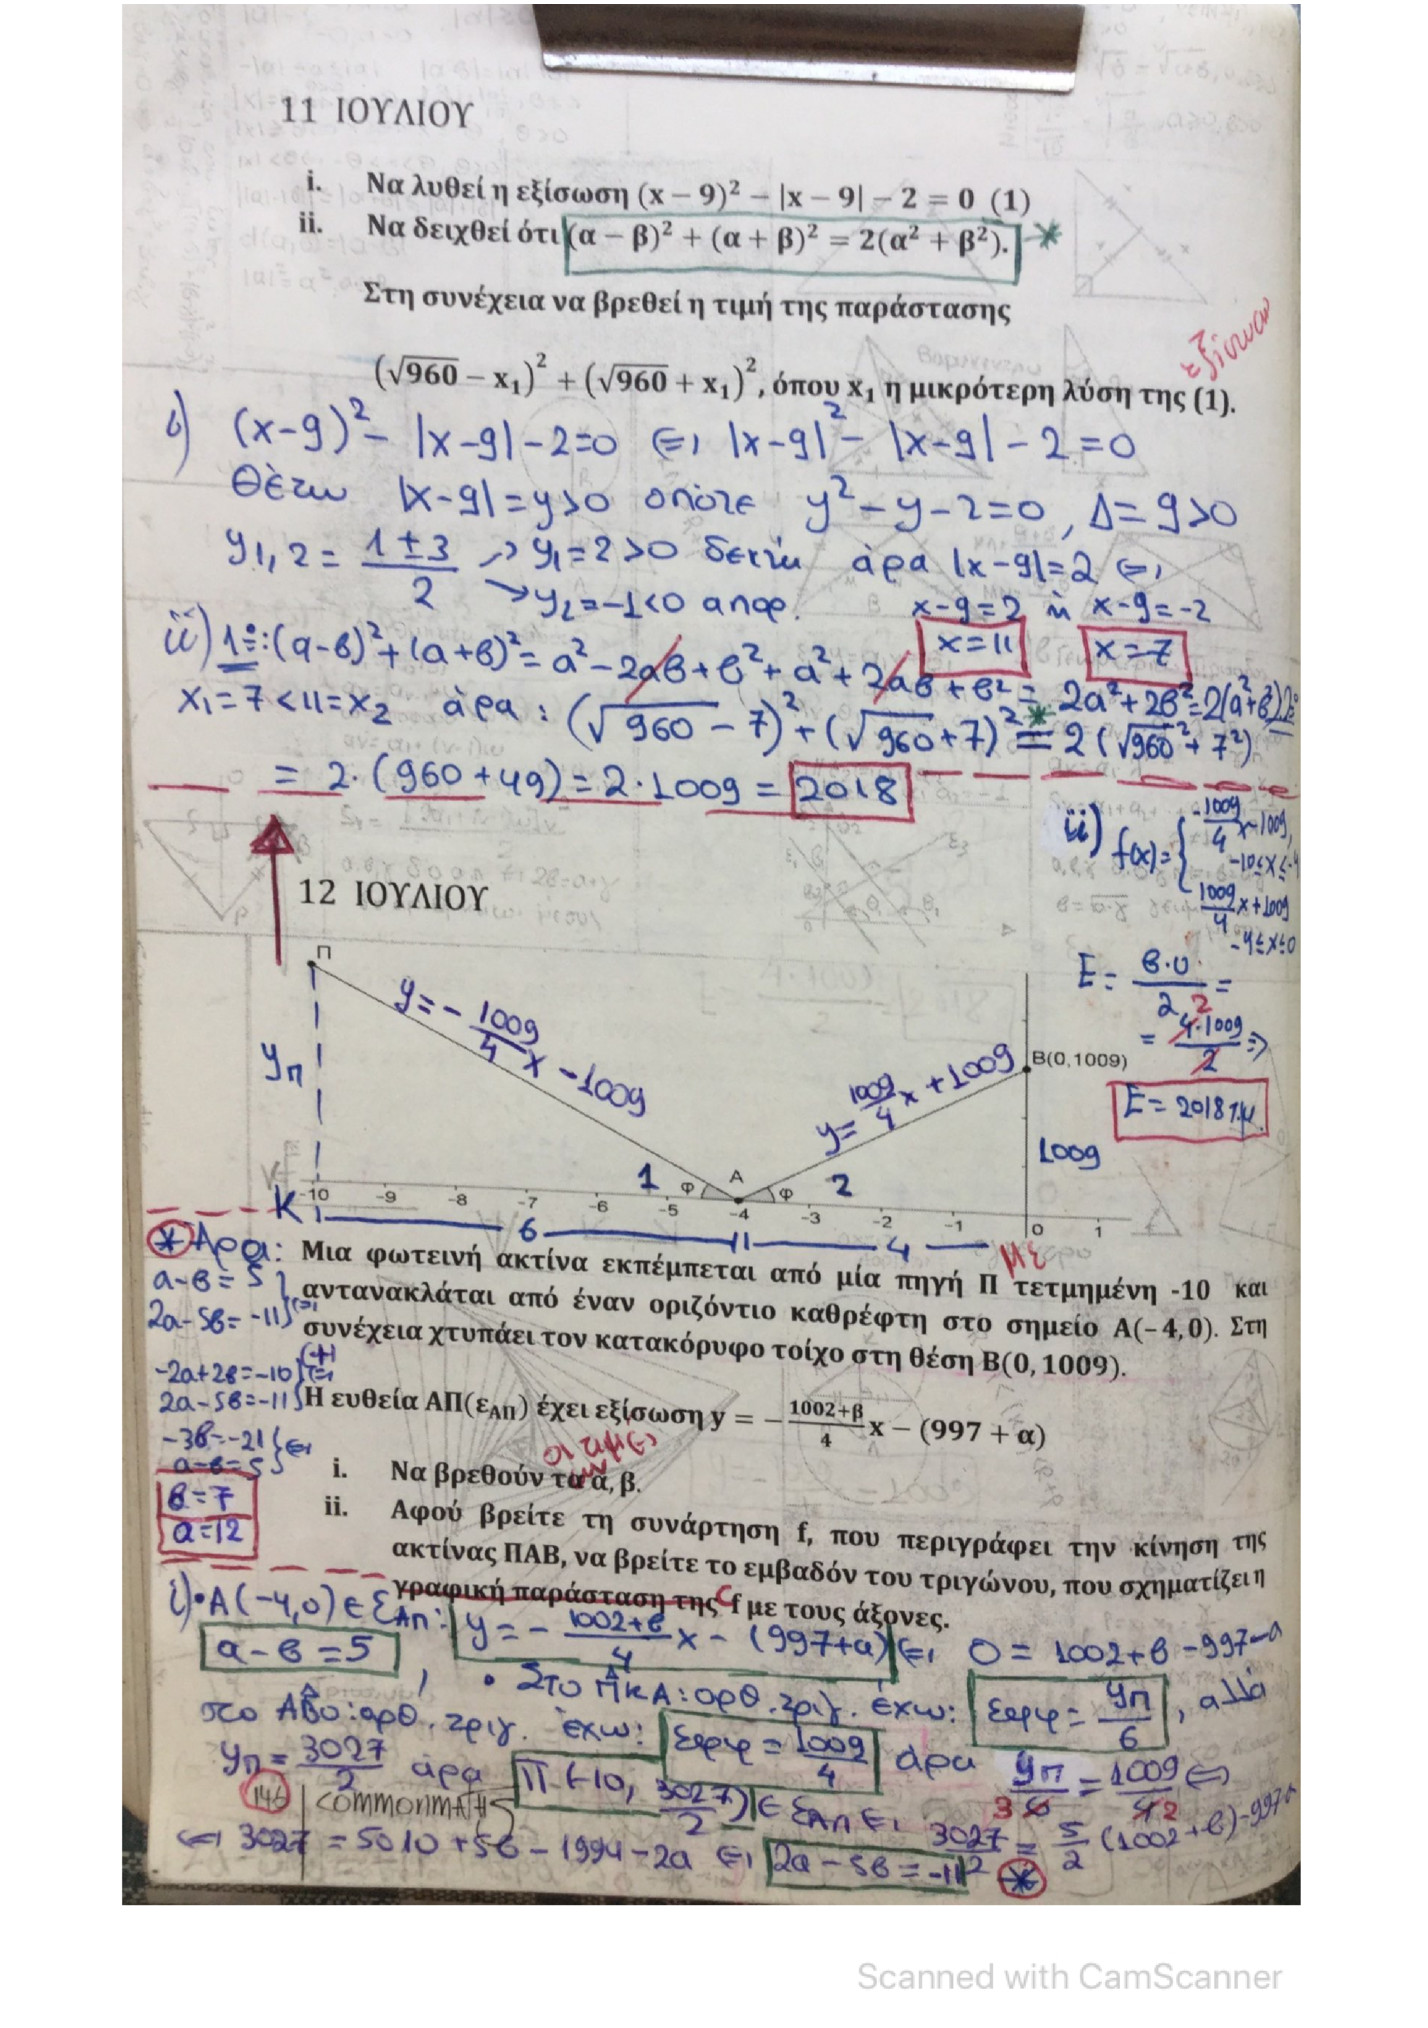 11 ΙΟΥΛΙΟΥ
i. Να λυθεί η εξίσωση (x − 9)² − |x − 9| − 2 = 0 (1)
ii. Να δειχθεί ότι (α − β)² + (α + β)² = 2(α² + β²). *
Στη συνέχεια να βρεθεί η τιμή της παράστασης
εξίσωση
(√960 − x₁)² + (√960 + x₁)², όπου x₁ η μικρότερη λύση της (1).
i) (x-9)² - |x-9| - 2=0 ⇔ |x-9|² - |x-9| - 2 = 0
Θέτω |x-9|=y>0 οπότε y² - y - 2=0, Δ=9>0
y1,2 = (1±3)/2 → y₁=2>0 δεκτή άρα |x-9|=2 ⇔
→ y₂=-1<0 απορ. x-9=2 ή x-9=-2
x=11 x=7
ii) 1=:(α-β)²+(α+β)²= α²-2αβ+β²+α²+2αβ+β² = 2α²+2β²=2(α²+β²)
x₁=7<11=x₂ άρα: (√960 - 7)²+(√960+7)² =* 2(√960²+7²)
= 2·(960+49)=2·1009 = 2018
12 ΙΟΥΛΙΟΥ
ii) f(x)= { -1009/4 x-1009, -10≤x≤-4
1009/4 x+1009 -4≤x≤0
E = β·υ/2 =
= 4·1009/2 ⇒
2
E= 2018 τ.μ.
Π
y=-1009/4 x -1009
yΠ
y= 1009/4 x +1009
B(0,1009)
1009
1 φ A φ 2
K -10 -9 -8 -7 -6 -5 -4 -3 -2 -1 0 1
6 4
με
* Άρα: Μια φωτεινή ακτίνα εκπέμπεται από μία πηγή Π τετμημένη -10 και
α-β=5
αντανακλάται από έναν οριζόντιο καθρέφτη στο σημείο Α(−4, 0). Στη
2α-5β=-11 ⇔
συνέχεια χτυπάει τον κατακόρυφο τοίχο στη θέση Β(0, 1009).
-2α+2β=-10 (+)
2α-5β=-11 ⇔
Η ευθεία ΑΠ(ε_ΑΠ) έχει εξίσωση y = −(1002+β)/4 x − (997 + α)
-3β=-21
α-β=5 ⇔
οι τιμές
i. Να βρεθούν τα α, β.
β=7
α=12
ii. Αφού βρείτε τη συνάρτηση f, που περιγράφει την κίνηση της
ακτίνας ΠΑΒ, να βρείτε το εμβαδόν του τριγώνου, που σχηματίζει η
γραφική παράσταση της C f με τους άξονες.
i)• A(-4,0) ∈ ε_ΑΠ: y = -(1002+β)/4 x - (997+α) ⇔ 0 = 1002+β-997-α
α-β=5, • Στο ΠΚΑ: ορθ. τριγ. έχω: εφφ = yΠ/6, αλλά
στο ΑΒΟ: ορθ. τριγ. έχω: εφφ = 1009/4 άρα yΠ/6 = 1009/4 ⇔
3 2
yΠ = 3027/2 άρα Π(-10, 3027/2) ∈ ε_ΑΠ ⇔ 3027/2 = 5/2 (1002+β)-997-α
146 | COMMONMATHS
⇔ 3027 = 5010+5β-1994-2α ⇔ 2α-5β=-11 *
Scanned with CamScanner